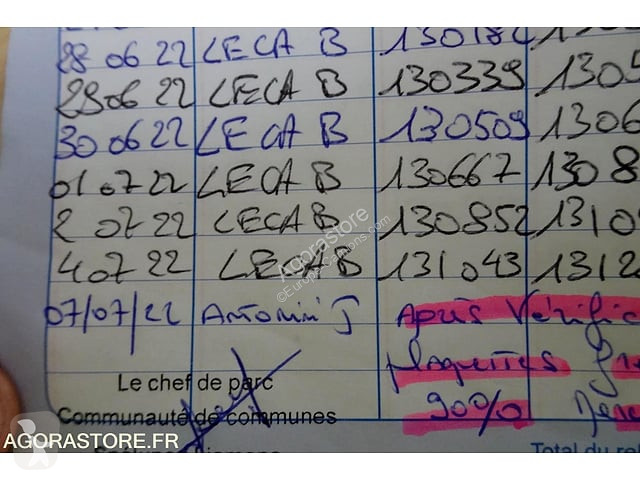 28 06 22 LECA B 130184
290622 LECA B 130339 1305
30 06 22 LECA B 130509 1306
01 07 22 LECA B 130667 1308
2 07 22 LECA B 130852 1310
4 07 22 LECA B 131043 1312
07/07/22 Antonini J Après Vérific
plaquettes
90%
Le chef de parc
Communauté de communes
Total du re
Agorastore
©Europe-Camions.com
AGORASTORE.FR